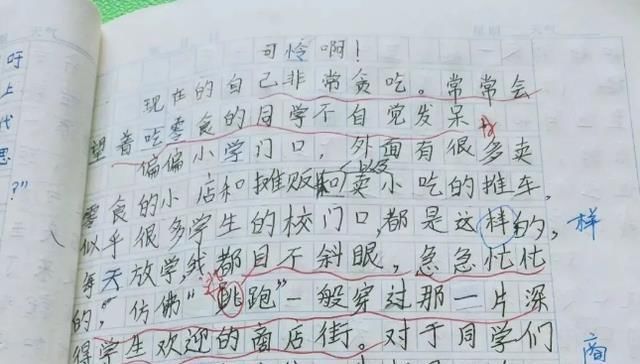 可怜啊！
现在的自己非常贪吃。常常会
望着吃零食的同学不自觉发呆
偏偏小学门口，外面有很多卖
零食的小店和摊贩以及卖小吃的推车，
似乎很多学生的校门口，都是这样的，样
每天放学，我都目不斜眼，急急忙忙
的，仿佛“逃跑”一般穿过那一片深
得学生欢迎的商店街。对于同学们
商
吁
上
代
思
?”